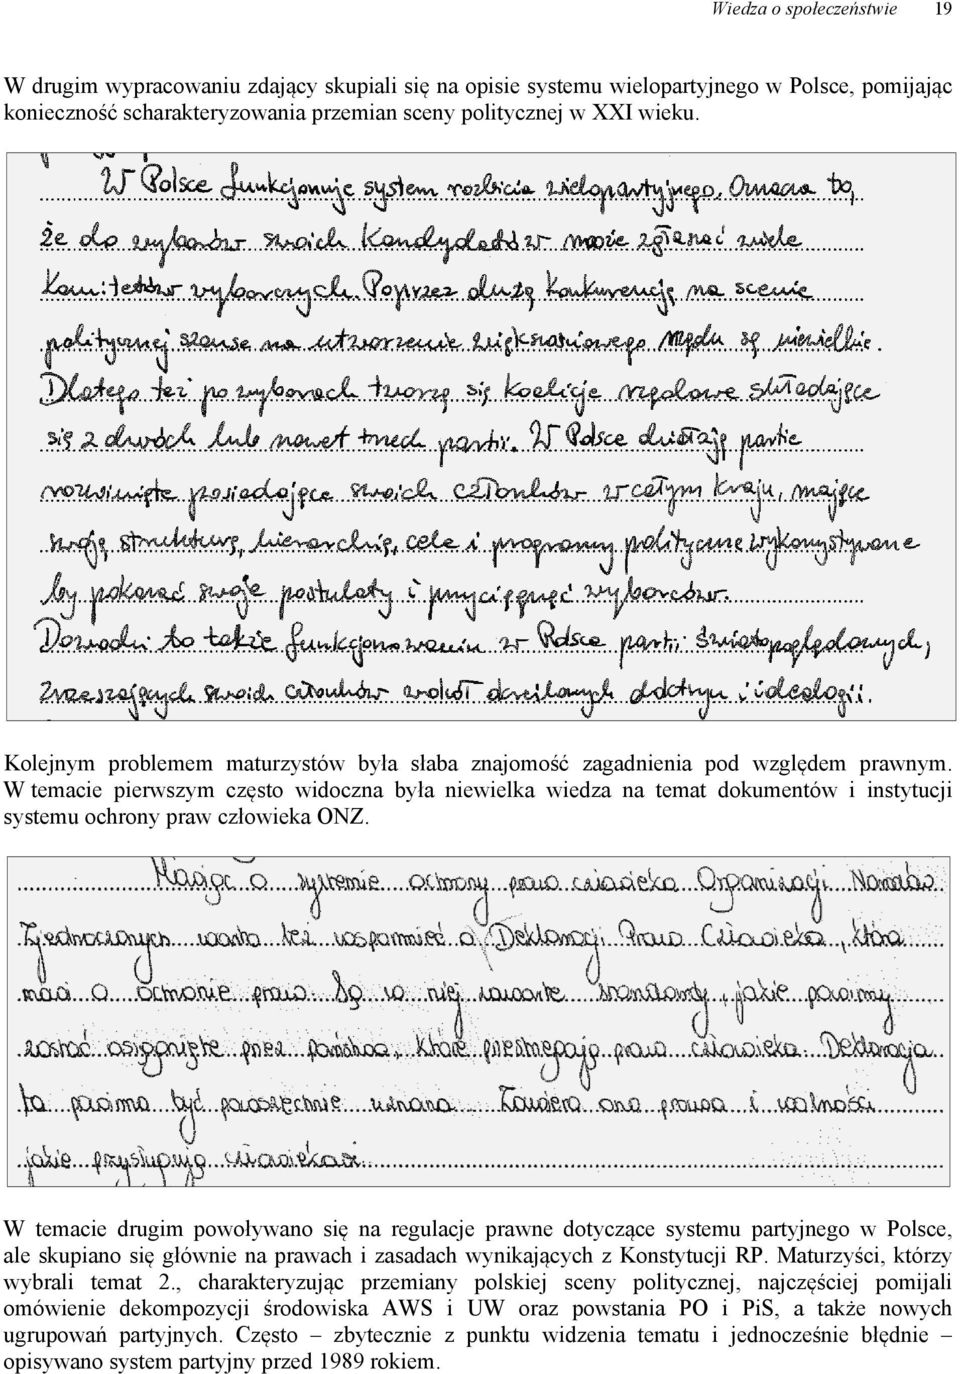 Wiedza o społeczeństwie 19
W drugim wypracowaniu zdający skupiali się na opisie systemu wielopartyjnego w Polsce, pomijając
konieczność scharakteryzowania przemian sceny politycznej w XXI wieku.
W Polsce funkcjonuje system rozbicia wielopartyjnego. Oznacza to,
że do wyborów swoich kandydatów może zgłaszać wiele
komitetów wyborczych. Poprzez dużą konkurencję na scenie
politycznej szanse na utworzenie większościowego rządu są niewielkie.
Dlatego też po wyborach tworzą się koalicje rządowe składające
się z dwóch lub nawet trzech partii. W Polsce działają partie
rozwinięte posiadające swoich członków w całym kraju, mające
swoją strukturę, hierarchię, cele i programy polityczne wykorzystywane
by pokazać swoje postulaty i przyciągnąć wyborców.
Dowodzi to także funkcjonowaniu w Polsce partii światopoglądowych,
zrzeszających swoich członków wokół określonych doktryn i ideologii.
Kolejnym problemem maturzystów była słaba znajomość zagadnienia pod względem prawnym.
W temacie pierwszym często widoczna była niewielka wiedza na temat dokumentów i instytucji
systemu ochrony praw człowieka ONZ.
Mówiąc o systemie ochrony praw człowieka Organizacji Narodów
Zjednoczonych warto też wspomnieć o Deklaracji Praw Człowieka, która
mówi o ochronie praw. Są w niej zawarte standardy, jakie powinny
zostać osiągnięte przez państwa, które przestrzegają praw człowieka. Deklaracja
ta powinna być powszechnie uznana. Zawiera ona prawa i wolności
jakie przysługują człowiekowi.
W temacie drugim powoływano się na regulacje prawne dotyczące systemu partyjnego w Polsce,
ale skupiano się głównie na prawach i zasadach wynikających z Konstytucji RP. Maturzyści, którzy
wybrali temat 2., charakteryzując przemiany polskiej sceny politycznej, najczęściej pomijali
omówienie dekompozycji środowiska AWS i UW oraz powstania PO i PiS, a także nowych
ugrupowań partyjnych. Często – zbytecznie z punktu widzenia tematu i jednocześnie błędnie –
opisywano system partyjny przed 1989 rokiem.